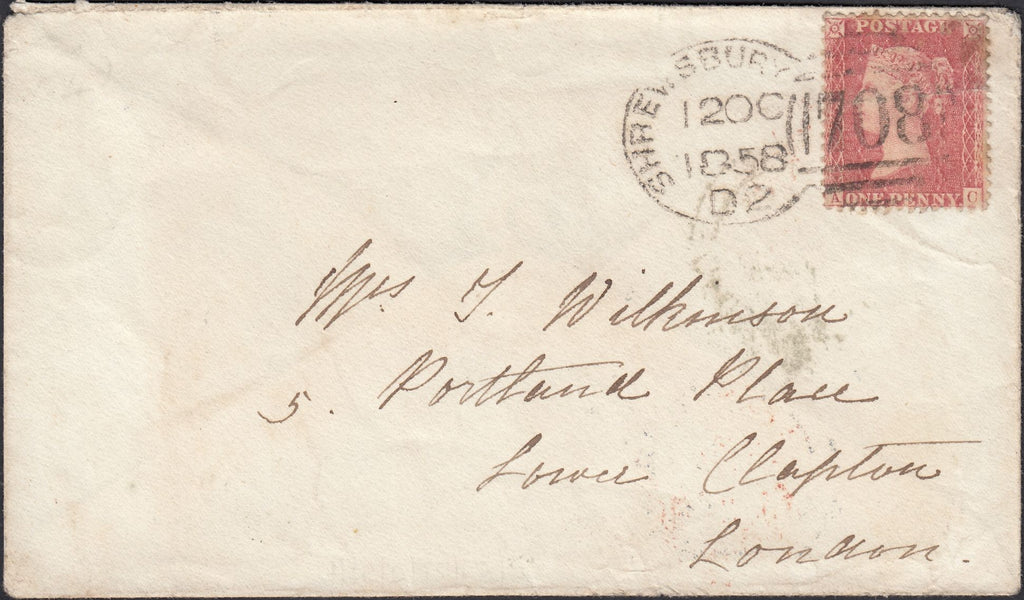 POSTAGE
SHREWSBURY
12 OC
1858
D2
708
A ONE PENNY C
Mrs J. Wilkinson
5. Portland Place
Lower Clapton
London.